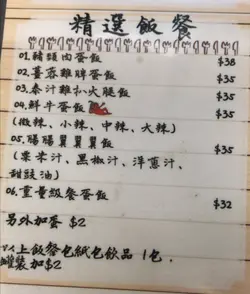 精選飯餐
01.豬頸肉蛋飯 $38
02.薑蒜雞髀蛋飯 $35
03.泰汁雞扒火腿飯 $35
04.鮮牛蛋飯 $35
(微辣、小辣、中辣、大辣)
05.腸腸翼翼翼飯 $35
(粟米汁、黑椒汁、洋蔥汁、
甜豉油)
06.重量級餐蛋飯 $32
另外加蛋 $2
以上飯餐包紙包飲品1包,
罐裝加$2